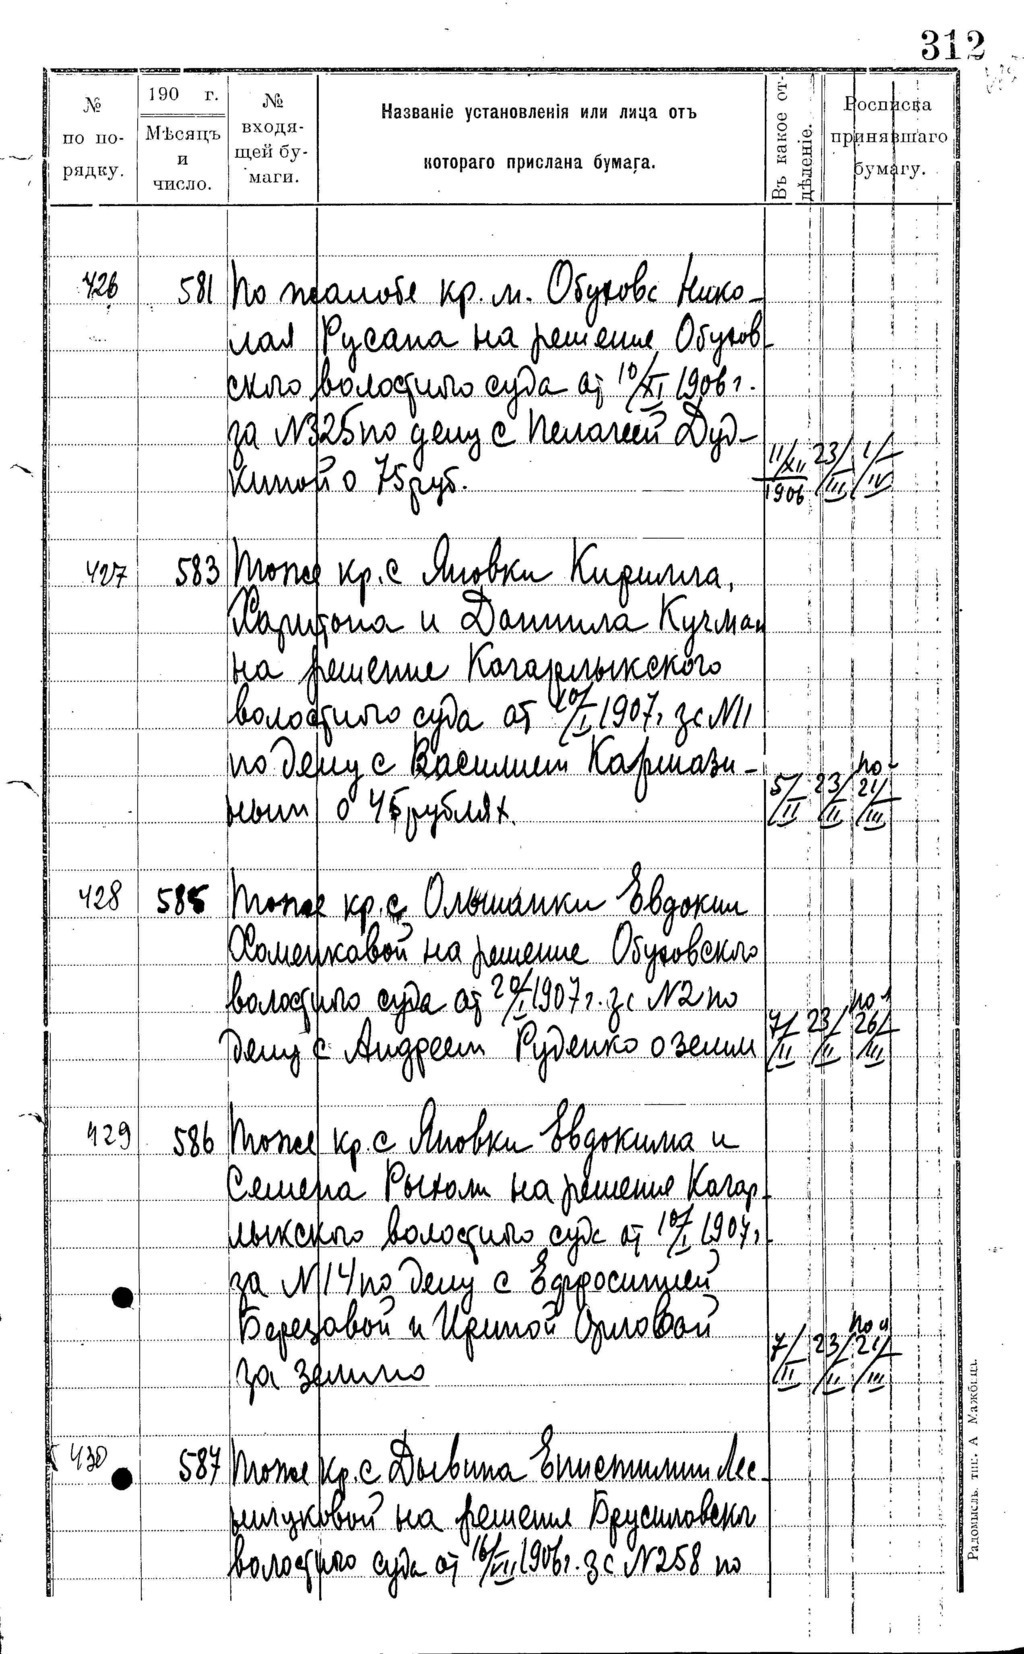 312
№ по по-рядку.
190 г. Мѣсяцъ и число.
№ входя-щей бу-маги.
Названіе установленія или лица отъ
котораго прислана бумага.
Въ какое от-дѣленіе.
Росписка принявшаго бумагу.
426 581 По жалобе кр. м. Обухова Нико-
лая Русана на решение Обухов-
ского волостного суда от 10/XI 1906 г.
за N325 по делу с Пелагеей Дуд-
киной о 75 руб. 11/XII 1906 23/III 1/IV
427 583 Тоже кр. с Яновки Кирилла,
Харитона и Даниила Кучман
на решение Кагарлыкского
волостного суда от 10/I 1907 г за N11
по делу с Василием Кармази-
ным о 45 рублях. 5/II 23/II по 21/III
428 585 Тоже кр. с Ольшанки Евдокии
Хоменковой на решение Обуховского
волостного суда от 20/I 1907 г. за N2 по
делу с Андреем Руденко о земли 7/II 23/II 26/III
429 586 Тоже кр. с Яновки Евдокима и
Семена на решение Кагар-
лыкского волостного суда от 10/I 1907 г
за N14 по делу с Ефросинией
Березовой и Ириной Орловой
за землю 7/II 23/II 21/III
430 587 Тоже кр. с Дывина Епистимии Лес-
на решение Брусиловског
волостного суда от 16/VII 1906 г. за N258 по
Радомысль, тип. А Мажбиц.